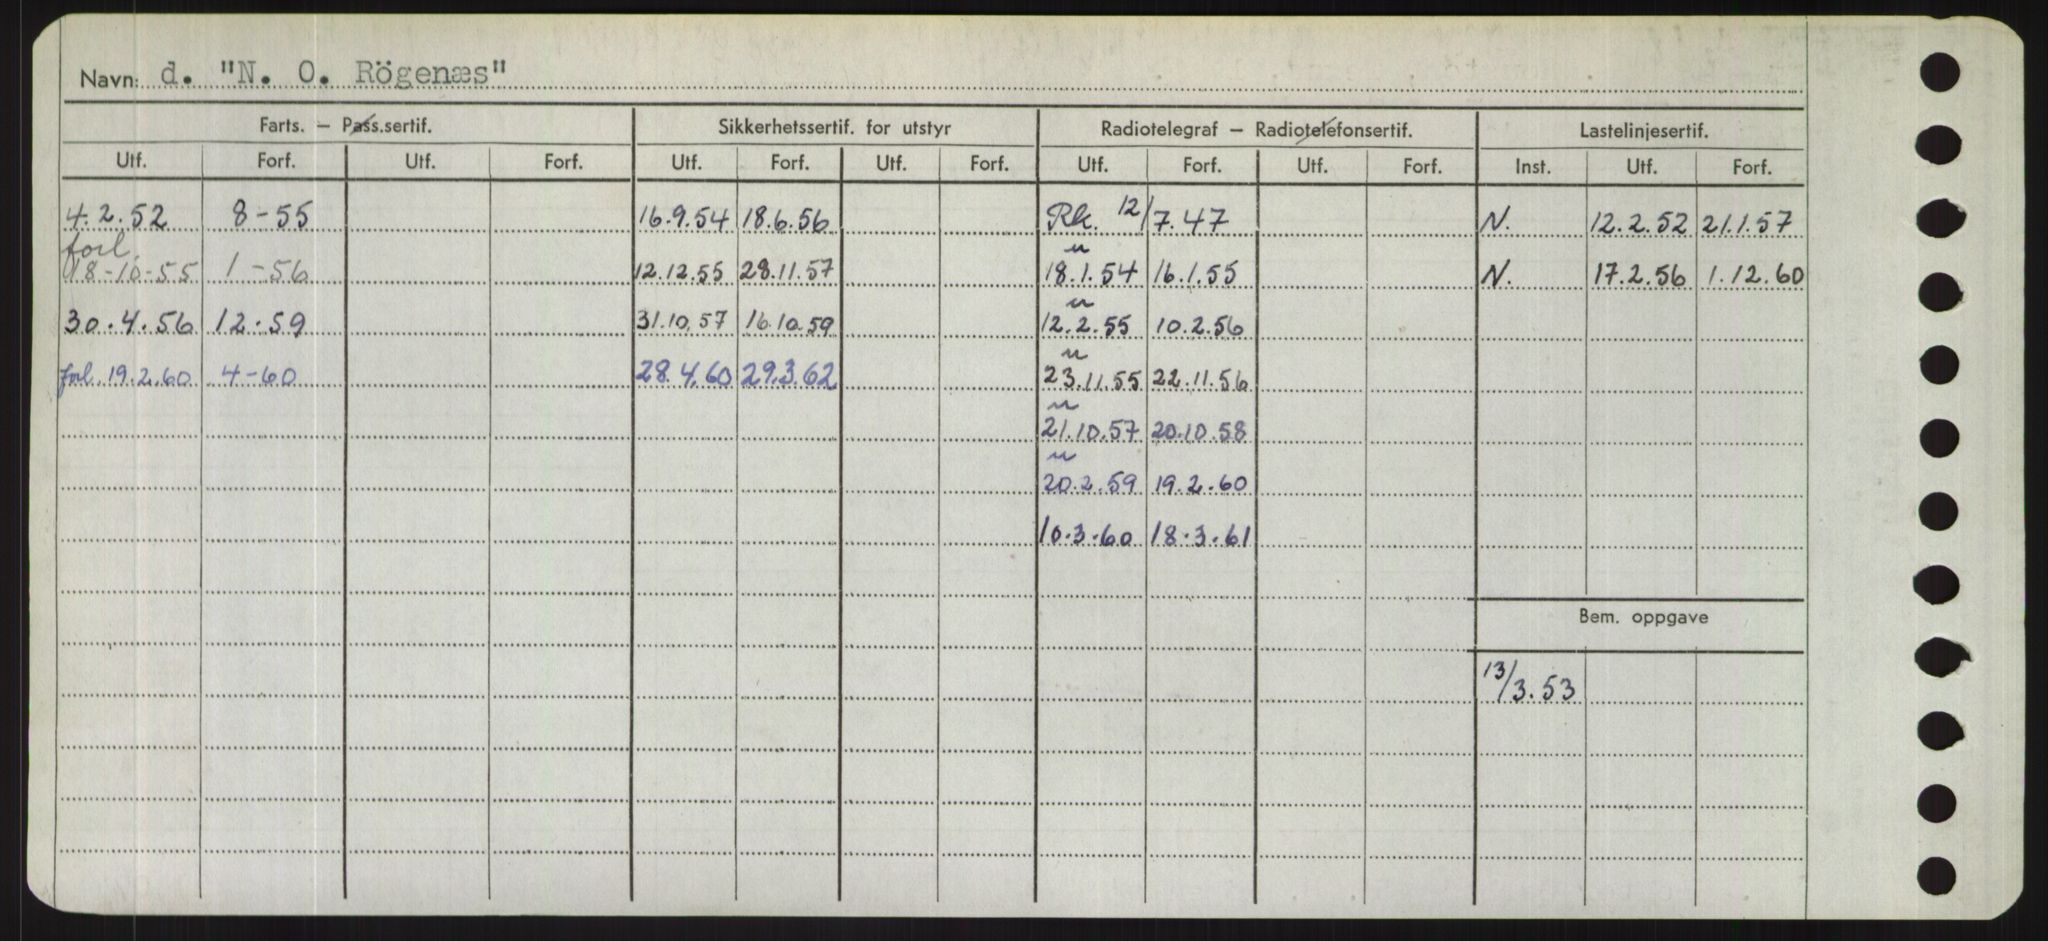 Navn: d. "N. O. Rögenæs"
Farts. – Pass.sertif. Sikkerhetssertif. for utstyr Radiotelegraf – Radiotelefonsertif. Lastelinjesertif.
Utf. Forf. Utf. Forf. Utf. Forf. Utf. Forf. Utf. Forf. Utf. Forf. Inst. Utf. Forf.
4.2.52 8-55 16.9.54 18.6.56 Rk. 12/7.47 N. 12.2.52 21.1.57
forl. "
18-10-55 1-56 12.12.55 28.11.57 18.1.54 16.1.55 N. 17.2.56 1.12.60
"
30.4.56 12.59 31.10.57 16.10.59 12.2.55 10.2.56
"
forl. 19.2.60 4-60 28.4.60 29.3.62 23.11.55 22.11.56
"
21.10.57 20.10.58
"
20.2.59 19.2.60
10.3.60 18.3.61
Bem. oppgave
13/3.53